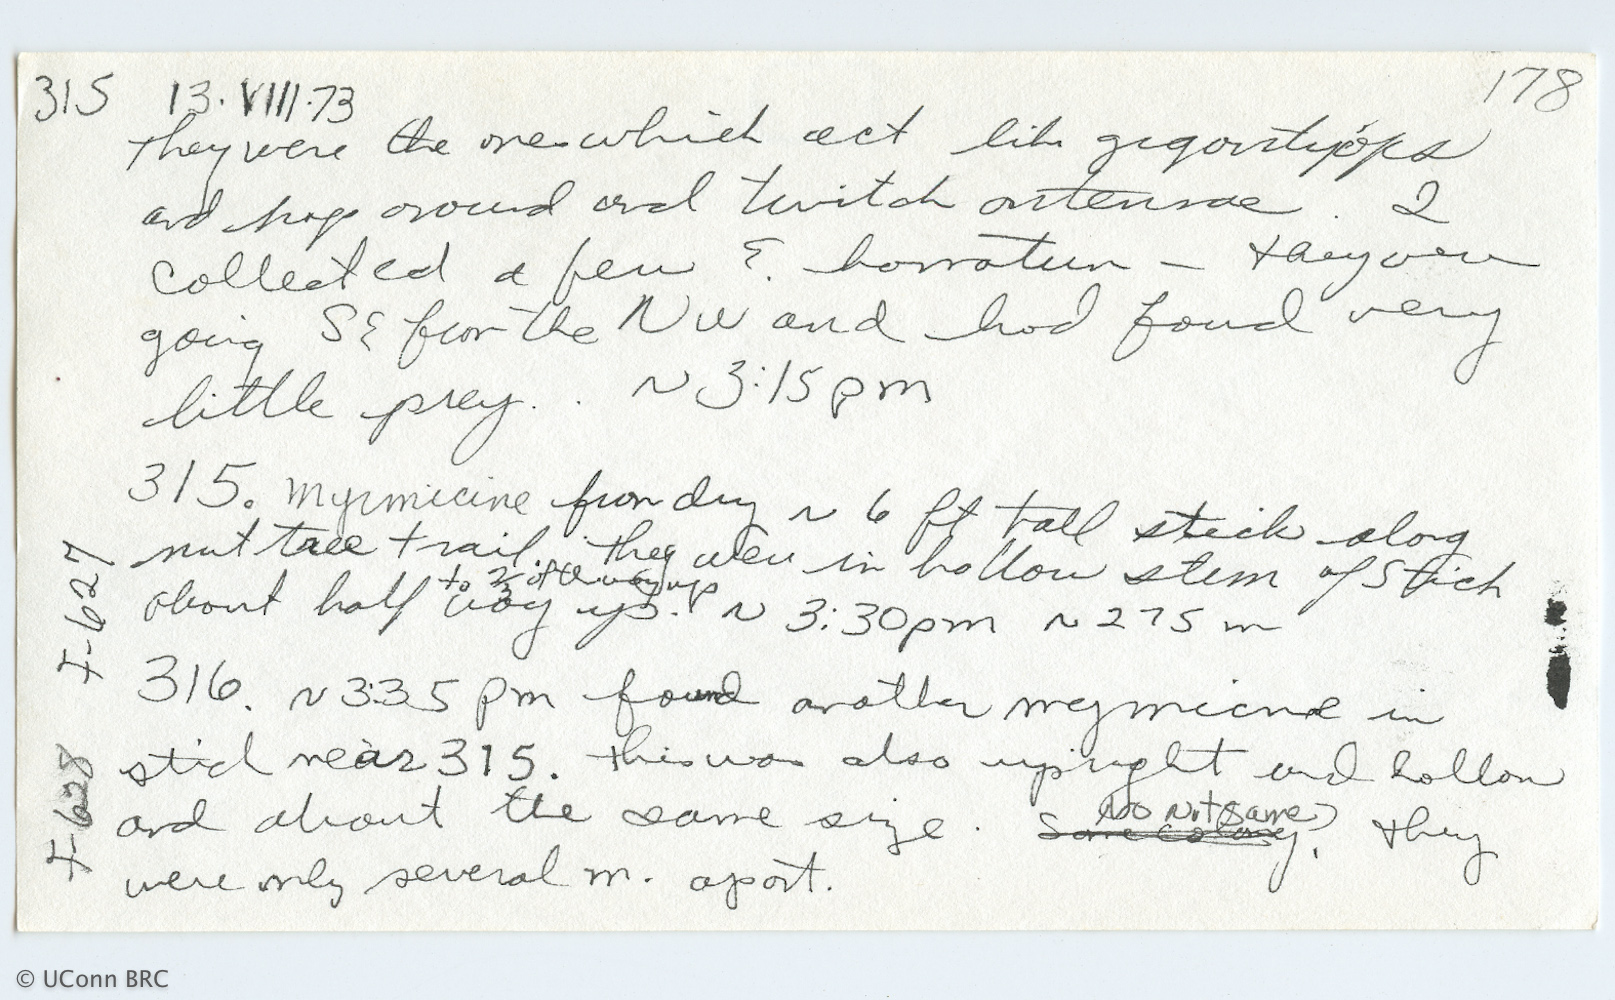 315 13.VIII.73 178
they were the ones which act like gigantiops
and hop around and twitch antennae. I
collected a few E. hamatum - they were
going SE from the NW and had found very
little prey. . ~ 3:15 pm
315. Myrmicine from dry ~ 6 ft tall stick along
nut tree trail. they were in hollow stem of stick
to 2/3 of the way up
about half way up. ~ 3:30pm ~ 275 m
316. ~ 3:35 pm found another myrmicine in
stick near 315. this was also upright and hollow
No Not Same
and about the same size. Same colony? they
were only several m. apart.
I-627
I-628
© UConn BRC